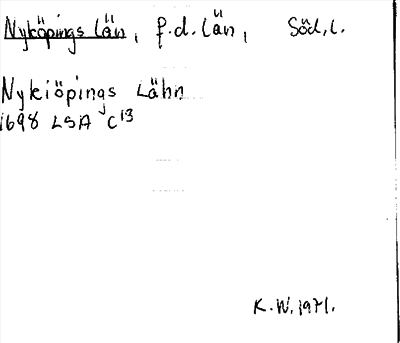 Nyköpings län, f.d. län, Söd, l.
Nykiöpings Lähn
1698 LSA C13
K.W. 1971.